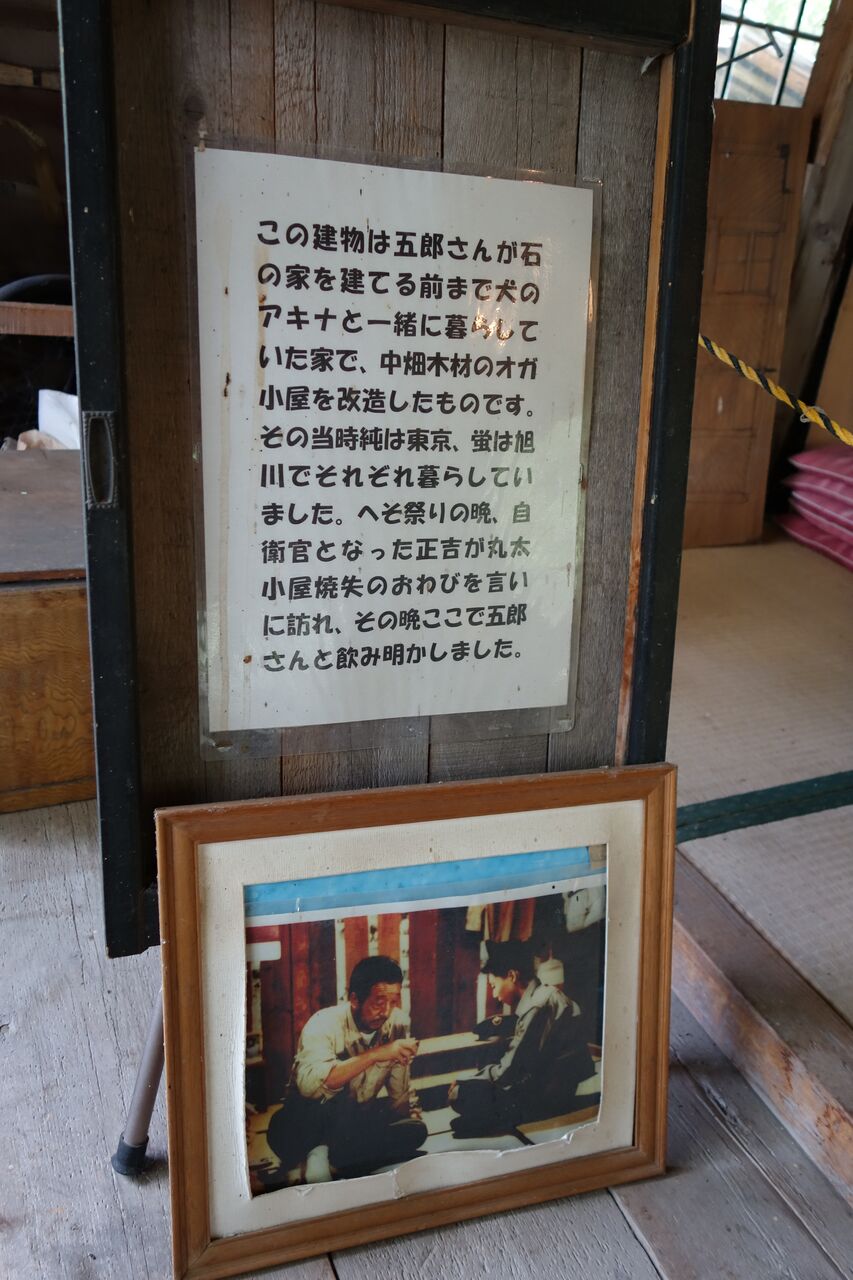 この建物は五郎さんが石
の家を建てる前まで犬の
アキナと一緒に暮らして
いた家で、中畑木材のオガ
小屋を改造したものです。
その当時純は東京、蛍は旭
川でそれぞれ暮らしてい
ました。へそ祭りの晩、自
衛官となった正吉が丸太
小屋焼失のおわびを言い
に訪れ、その晩ここで五郎
さんと飲み明かしました。